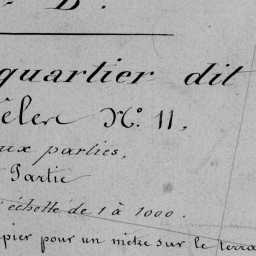 B.
quartier dit
êler N.° 11.
ux parties.
Partie
échelle de 1 à 1000.
pier pour un mètre sur le terra